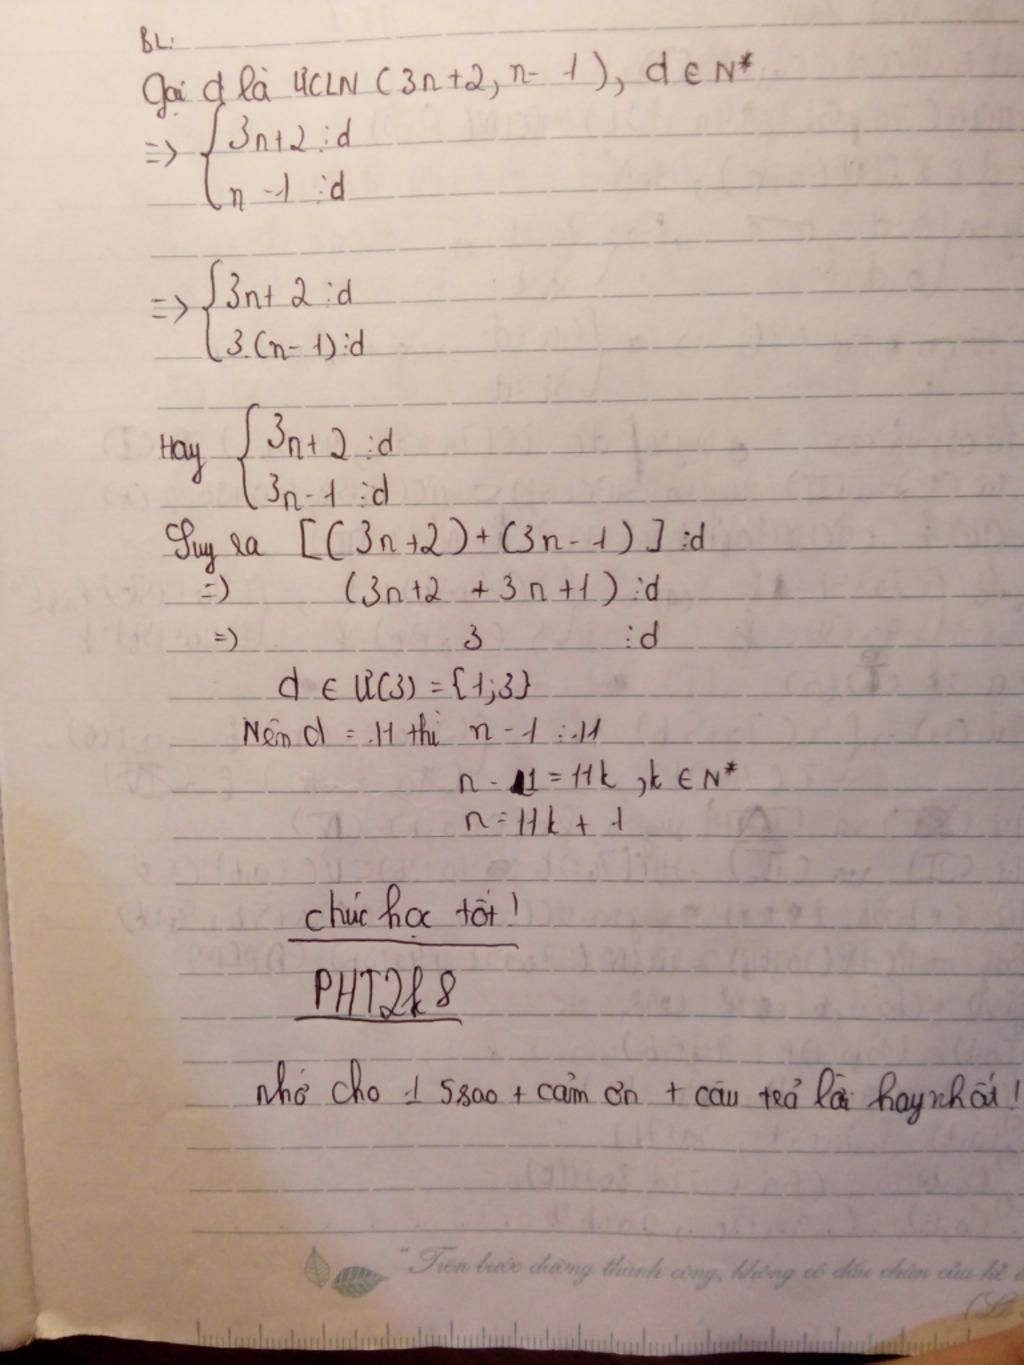 BL:
Gọi d là ƯCLN (3n+2, n-1), d ∈ N*
=> { 3n+2 ⋮ d
n-1 ⋮ d
=> { 3n+2 ⋮ d
3.(n-1) ⋮ d
Hay { 3n+2 ⋮ d
3n-1 ⋮ d
Suy ra [(3n+2)+(3n-1)] ⋮ d
=> (3n+2 +3n+1) ⋮ d
=> 3 ⋮ d
d ∈ Ư(3) = {1;3}
Nên d = 11 thì n-1 ⋮ 11
n-1 = 11k, k ∈ N*
n = 11k + 1
chúc học tốt!
PHT2k8
nhớ cho 5sao + cảm ơn + câu trả lời hay nhất!
"Trên bước đường thành công, không có dấu chân của kẻ